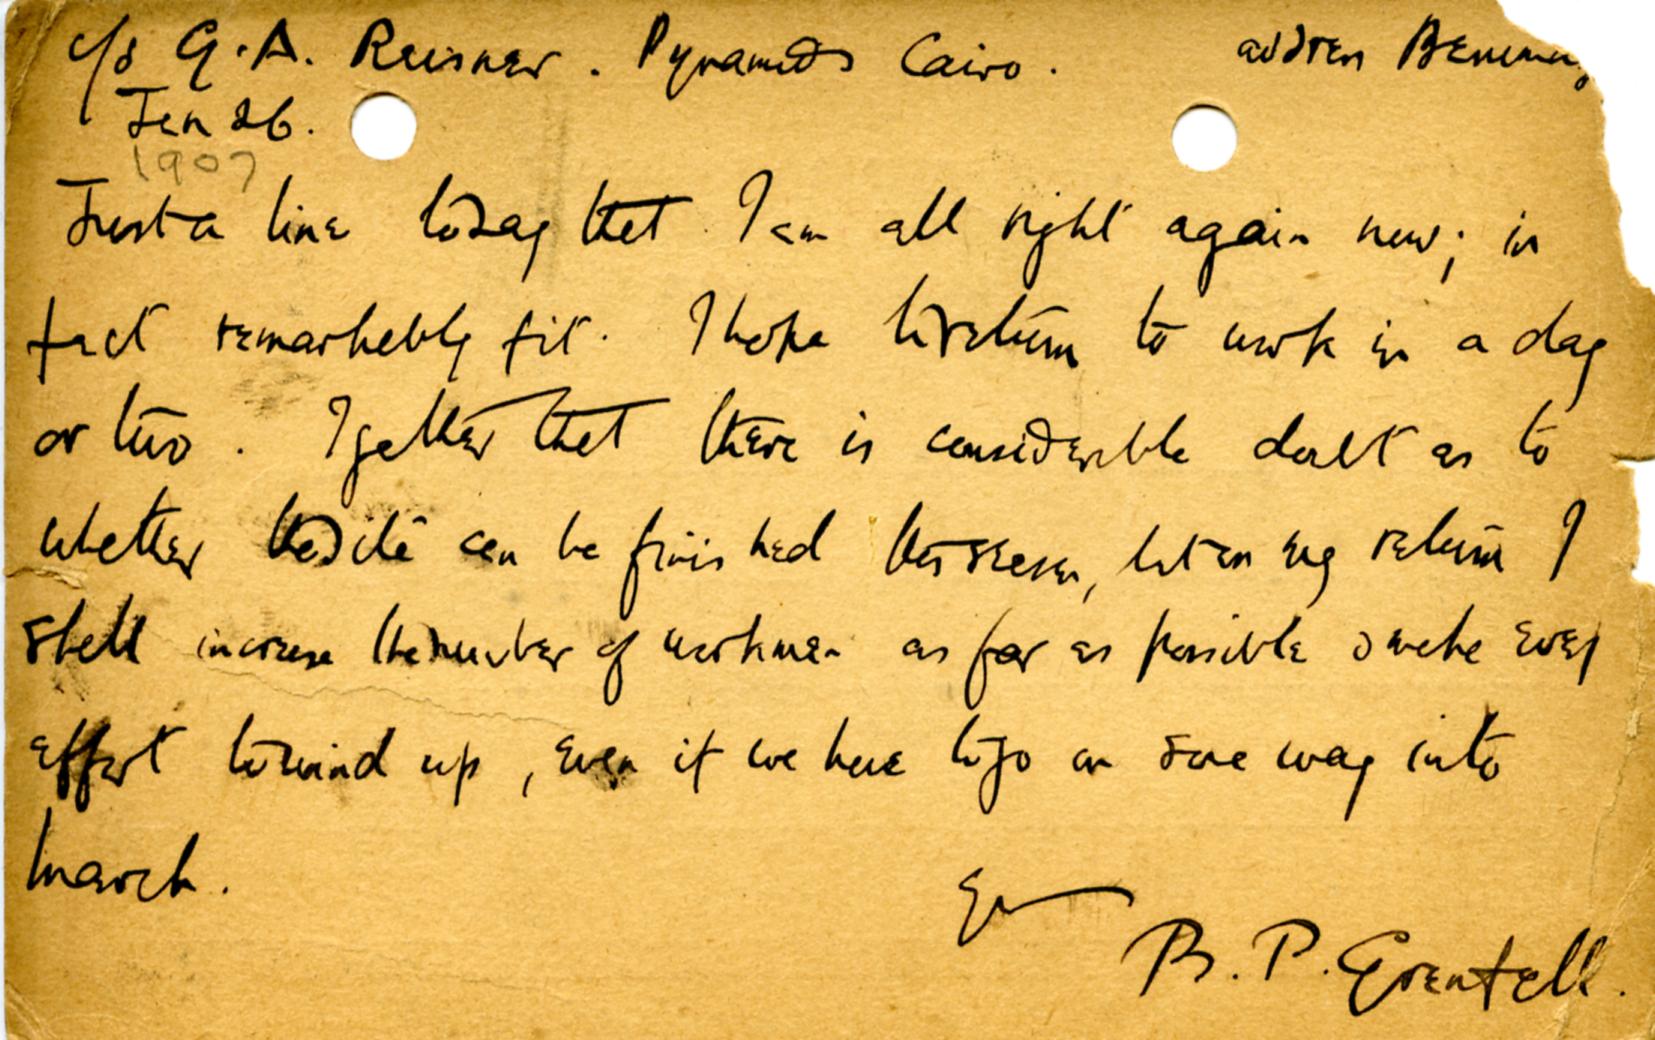 c/o G. A. Reisner. Pyramids Cairo. address
Jan 26.
1907
Just a line to say that I am all right again now; in
fact remarkably fit. I hope to return to work in a day
or two. I gather that there is considerable doubt as to
whether the site can be finished this season, but on my return I
shall increase the number of workmen as far as possible & make every
effort to wind up, even if we have to go on some way into
March.
B. P. Grenfell.